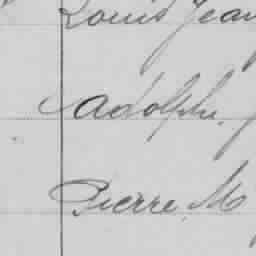 Louis Jean
Adolphe
Pierre M